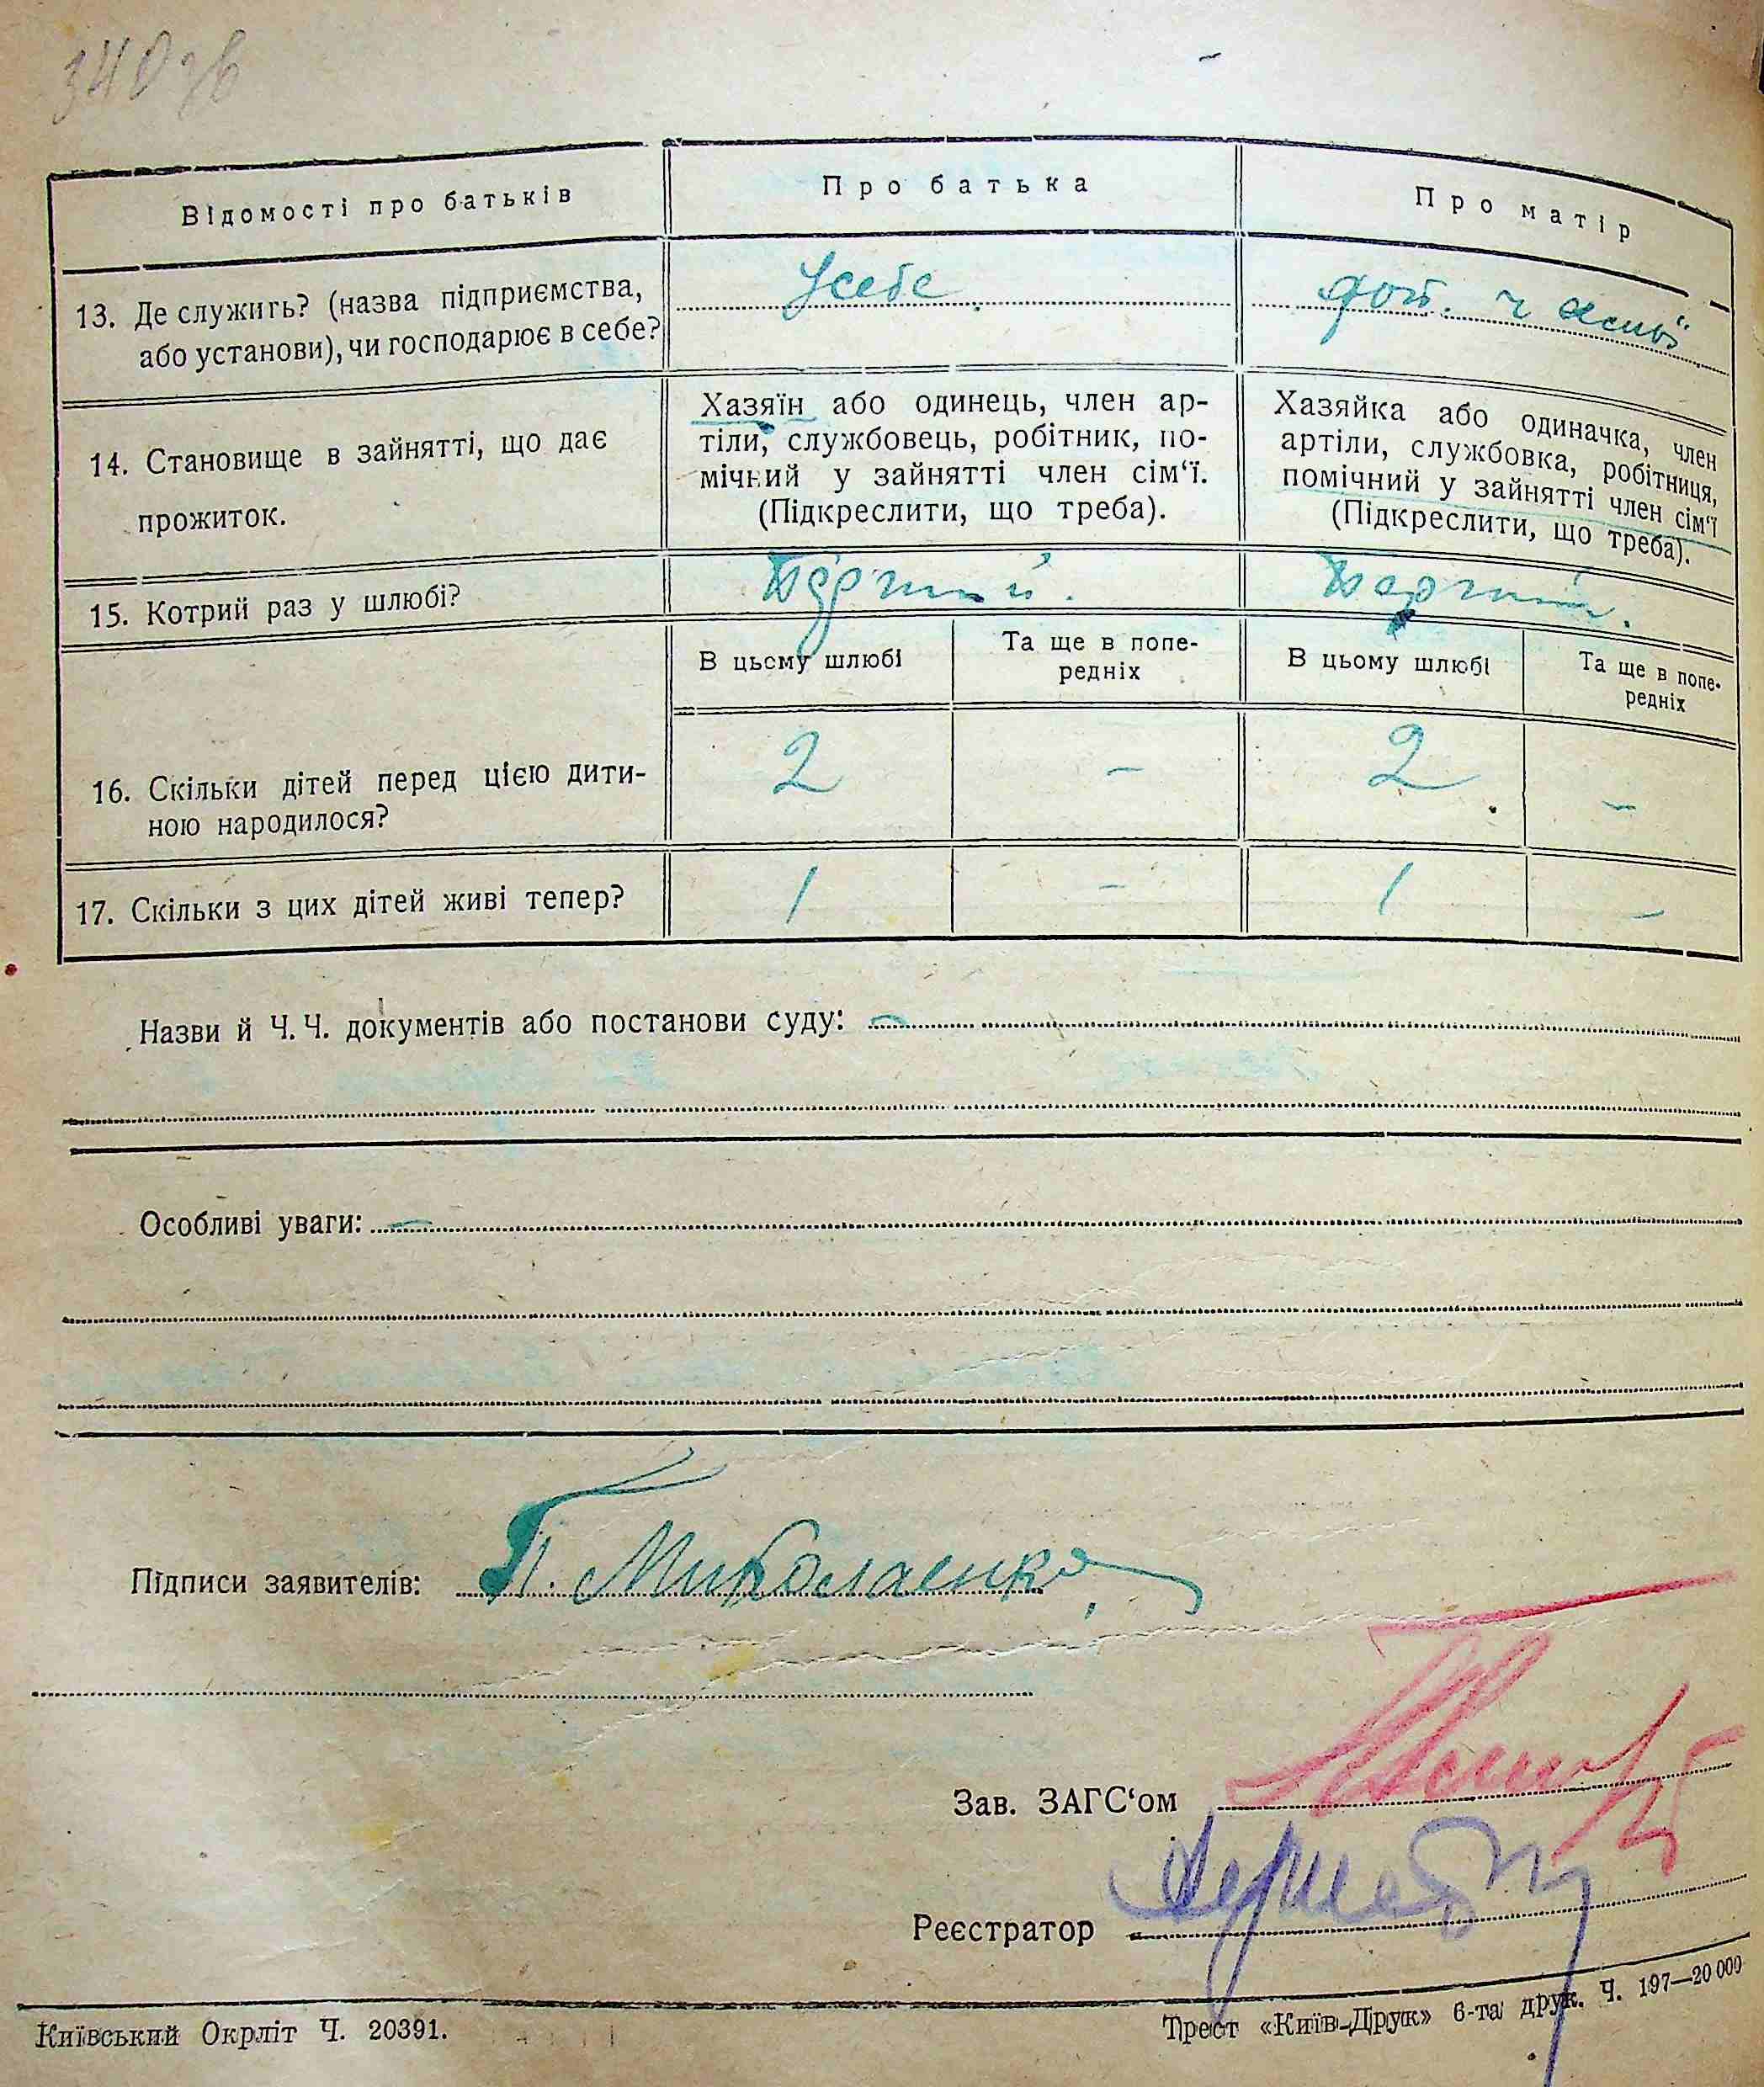 340 зв
Відомості про батьків
Про батька
Про матір
13. Де служить? (назва підприємства,
або установи), чи господарює в себе?
У себе
14. Становище в зайнятті, що дає
прожиток.
Хазяїн або одинець, член ар-
тіли, службовець, робітник, по-
мічний у зайнятті член сім‘ї.
(Підкреслити, що треба).
Хазяйка або одиначка, член
артіли, службовка, робітниця,
помічний у зайнятті член сім‘ї
(Підкреслити, що треба).
15. Котрий раз у шлюбі?
В цьому шлюбі
Та ще в попе-
редніх
В цьому шлюбі
Та ще в попе-
редніх
16. Скільки дітей перед цією дити-
ною народилося?
2 - 2 -
17. Скільки з цих дітей живі тепер?
1 - 1 -
Назви й Ч. Ч. документів або постанови суду: —
Особливі уваги: —
Підписи заявителів: П. Миколаенко
Зав. ЗАГС‘ом
Реєстратор
Київський Окрліт Ч. 20391.
Трест «Київ-Друк» 6-та друк. Ч. 197—20 000